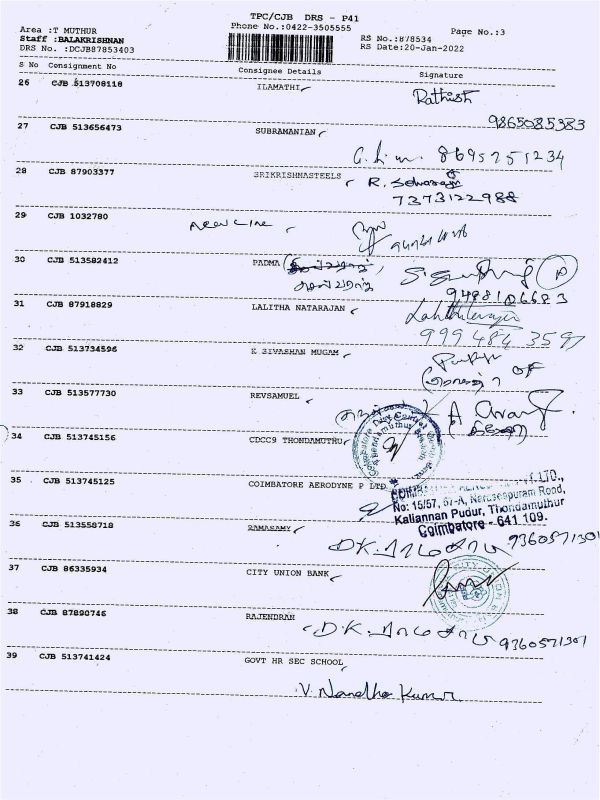 TPC/CJB DRS - P41
Area :T MUTHUR
Phone No.:0422-3505555
Page No.:3
Staff :BALAKRISHNAN
RS No.:878534
DRS No. :DCJB87853403
RS Date:20-Jan-2022
S No Consignment No Consignee Details Signature
26 CJB 513708118 ILAMATHI Rathish
9865085383
27 CJB 513656473 SUBRAMANIAN
8695251234
28 CJB 87903377 SRIKRISHNASTEELS R. Selvaraj
7373122988
29 CJB 1032780 New Line
30 CJB 513582412 PADMA
9488106683
31 CJB 87918829 LALITHA NATARAJAN
32 CJB 513734596 K SIVASHAN MUGAM
33 CJB 513577730 REVSAMUEL
34 CJB 513745156 CDCC9 THONDAMUTHU
35 CJB 513745125 COIMBATORE AERODYNE P LTD.
No: 15/57, 67-A, Naraseepuram Road,
Kaliannan Pudur, Thondamuthur
Coimbatore - 641 109.
36 CJB 513558718 RAMASAMY
9360571301
37 CJB 86335934 CITY UNION BANK
38 CJB 87890746 RAJENDRAN
9360571301
39 CJB 513741424 GOVT HR SEC SCHOOL
V. Nandha Kumar